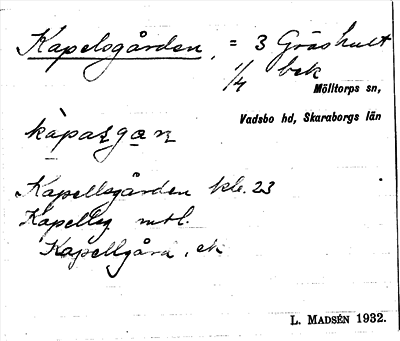 Kapelsgården, = 3 Gräshult
1/4 bck
Mölltorps sn,
Vadsbo hd, Skaraborgs län
Kapellsgården kle. 23
Kapellsg mtl.
Kapellgård, ek
L. MADSÉN 1932.